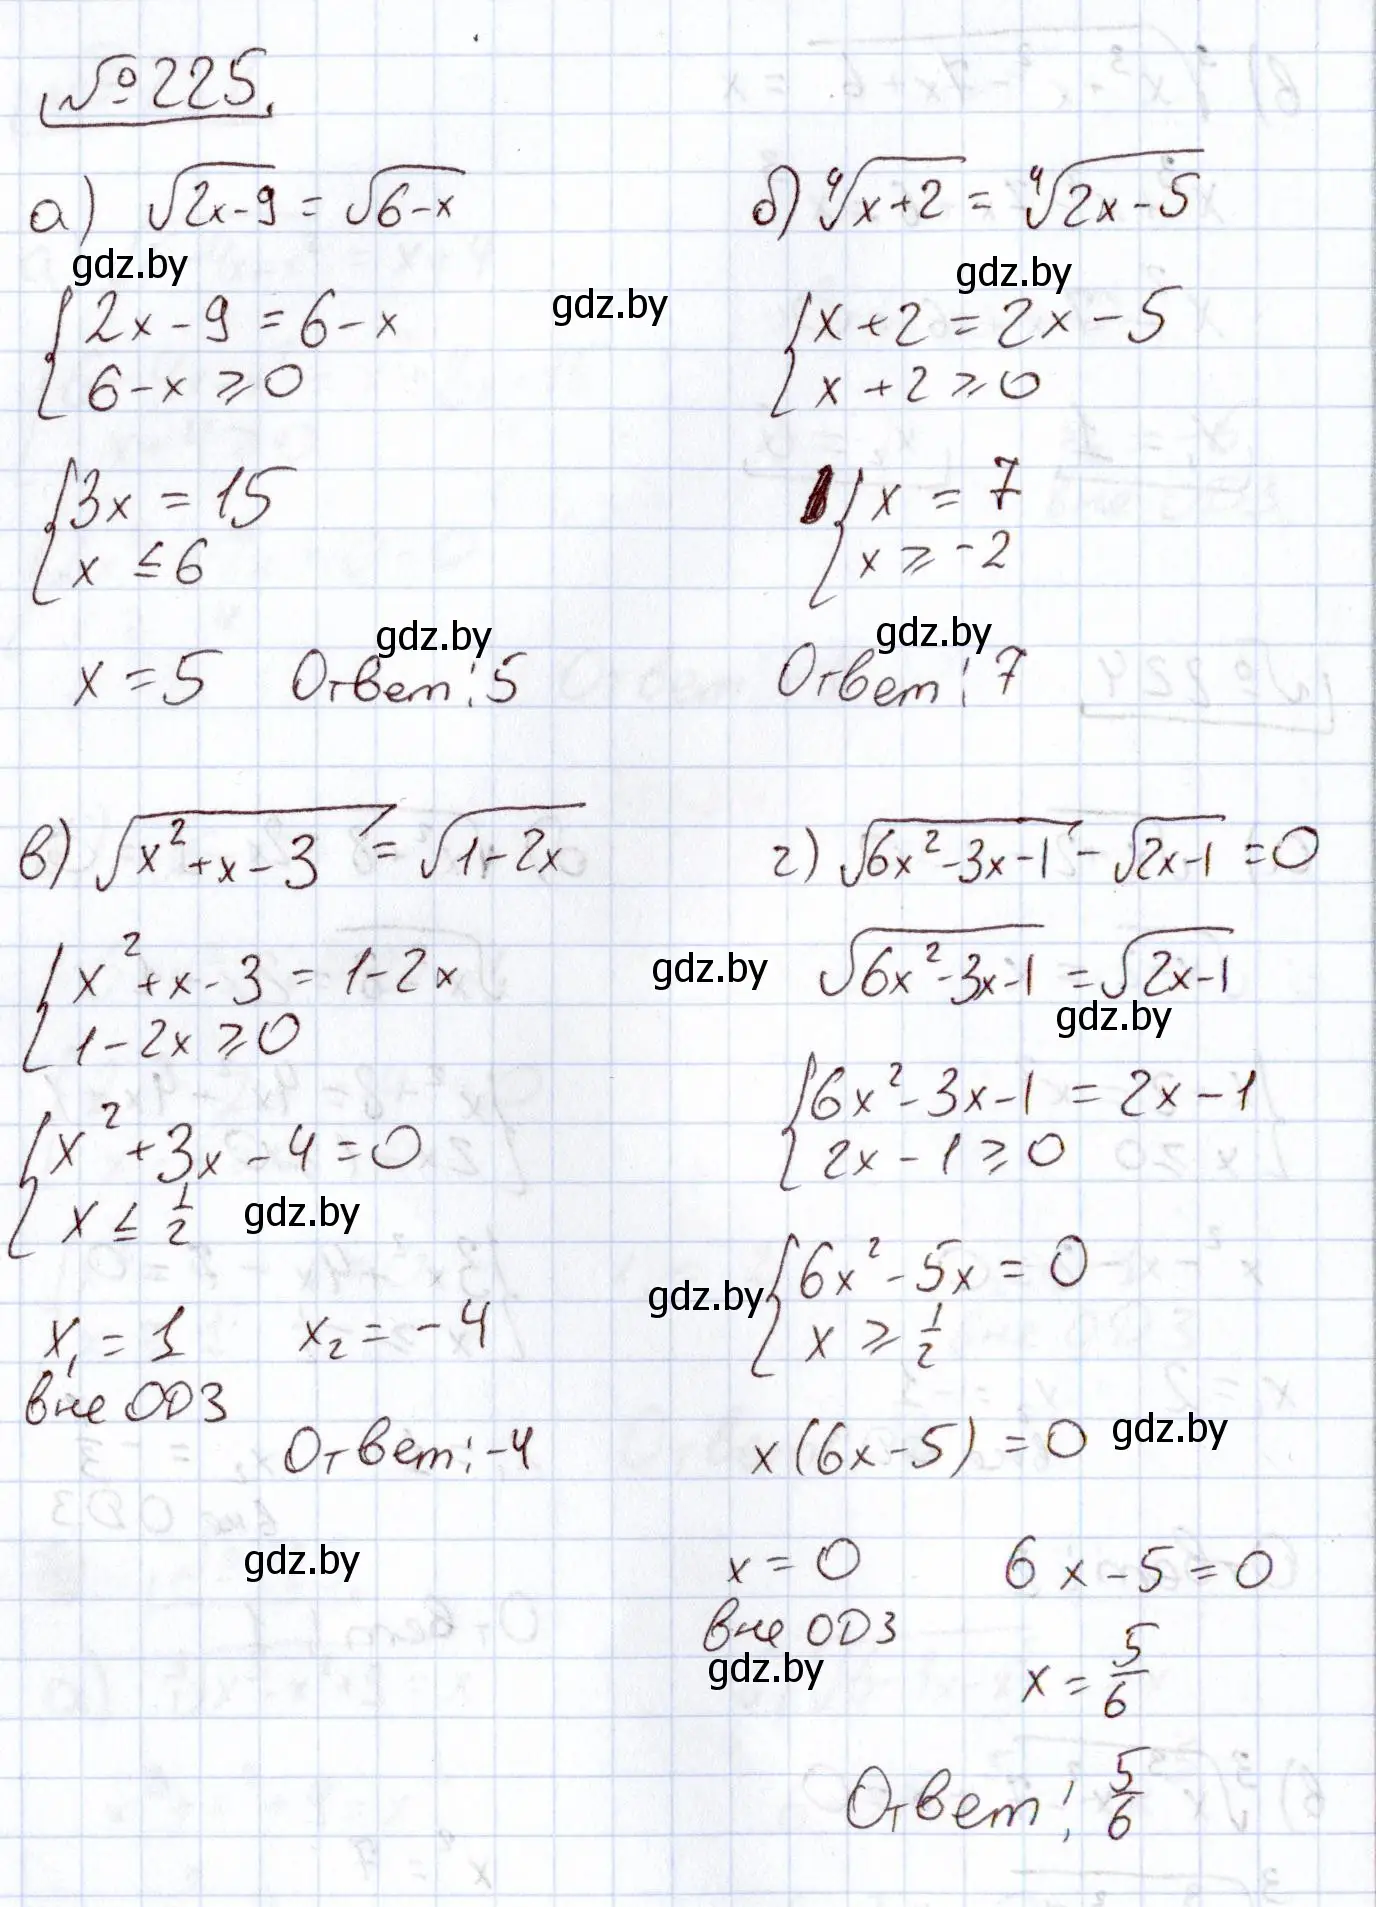 №225.
а) √(2x-9) = √(6-x)
gdz.by
{ 2x-9 = 6-x
6-x ≥ 0
{ 3x = 15
x ≤ 6
gdz.by
x = 5 Ответ: 5
gdz.by
б) ⁴√(x+2) = ⁴√(2x-5)
gdz.by
{ x+2 = 2x-5
x+2 ≥ 0
{ x = 7
x ≥ -2
gdz.by
Ответ: 7
в) √(x²+x-3) = √(1-2x)
{ x²+x-3 = 1-2x
1-2x ≥ 0
{ x²+3x-4 = 0
x ≤ 1/2
gdz.by
x₁ = 1 x₂ = -4
вне ОДЗ
Ответ: -4
gdz.by
г) √(6x²-3x-1) - √(2x-1) = 0
gdz.by
√(6x²-3x-1) = √(2x-1)
gdz.by
{ 6x²-3x-1 = 2x-1
2x-1 ≥ 0
{ 6x²-5x = 0
gdz.by
x ≥ 1/2
x(6x-5) = 0
gdz.by
x = 0 6x-5 = 0
вне ОДЗ
gdz.by
x = 5/6
Ответ: 5/6